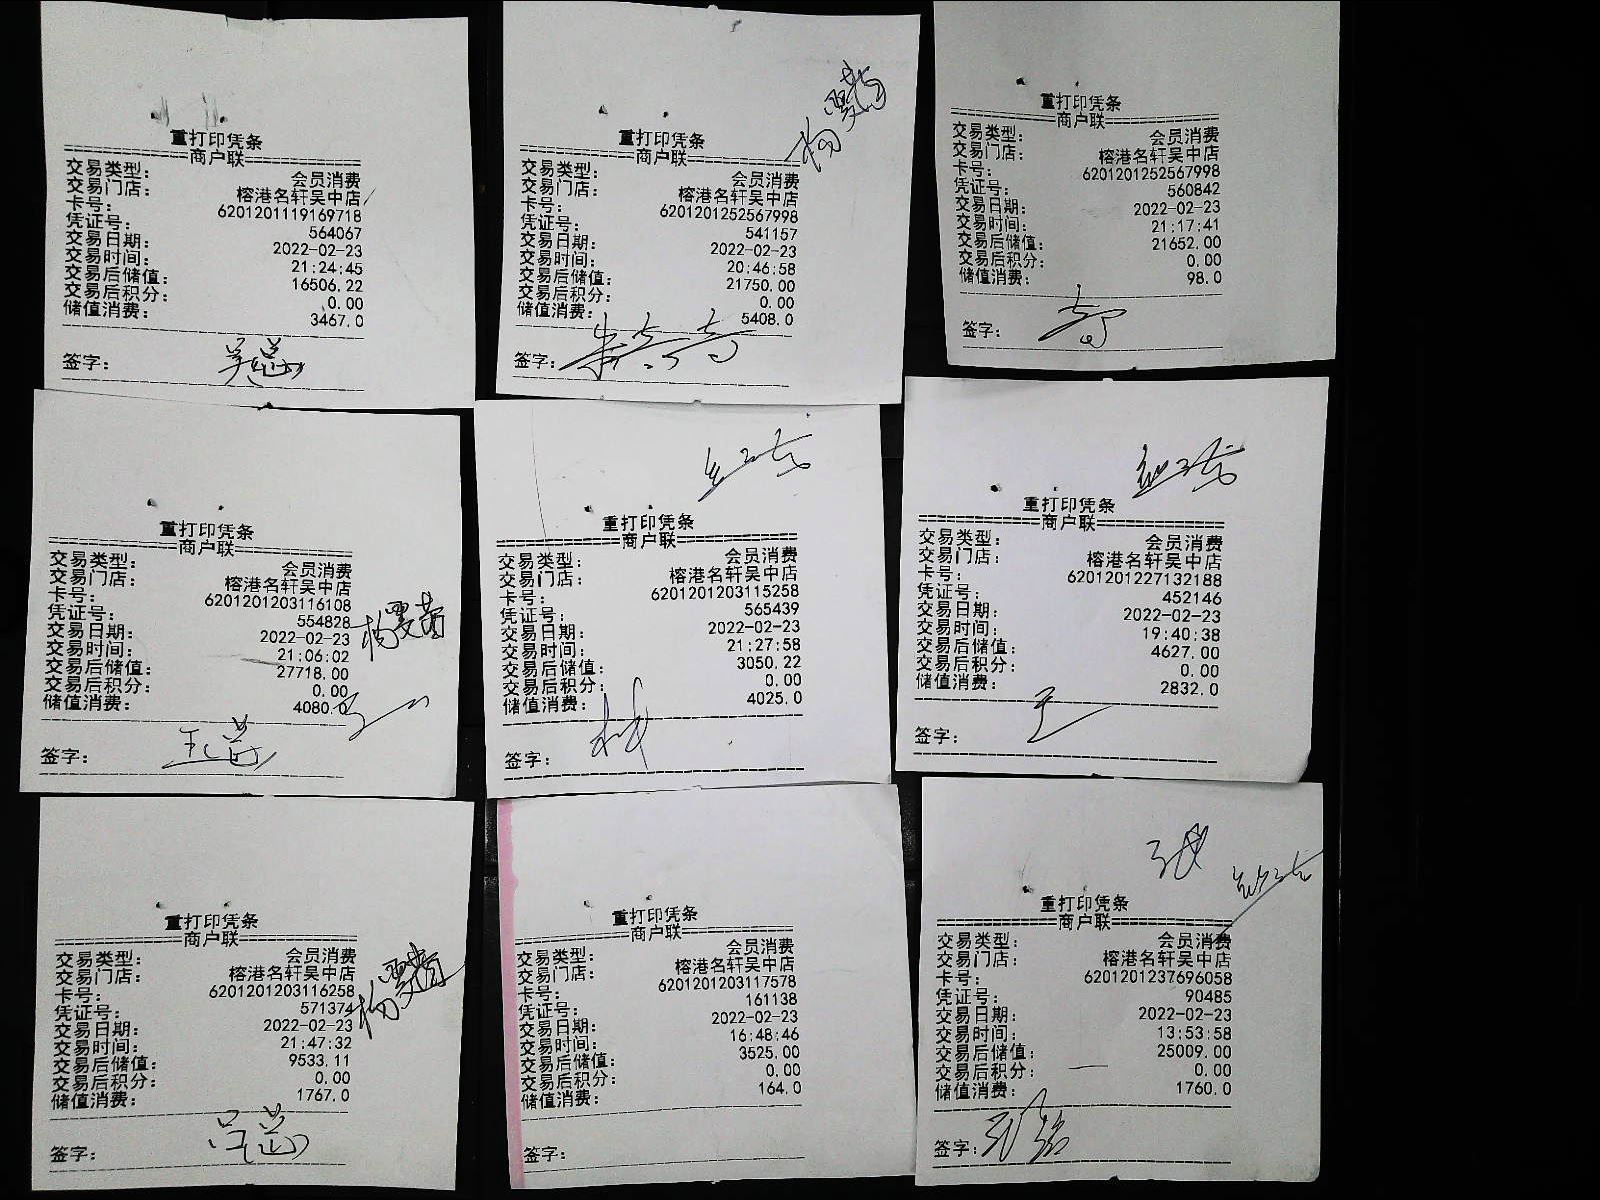 重打印凭条
==============商户联==============
交易类型: 会员消费
交易门店: 榕港名轩吴中店
卡号: 6201201119169718
凭证号: 564067
交易日期: 2022-02-23
交易时间: 21:24:45
交易后储值: 16506.22
交易后积分: 0.00
储值消费: 3467.0
签字:
重打印凭条
==============商户联==============
交易类型: 会员消费
交易门店: 榕港名轩吴中店
卡号: 6201201252567998
凭证号: 541157
交易日期: 2022-02-23
交易时间: 20:46:58
交易后储值: 21750.00
交易后积分: 0.00
储值消费: 5408.0
签字:
重打印凭条
==============商户联==============
交易类型: 会员消费
交易门店: 榕港名轩吴中店
卡号: 6201201252567998
凭证号: 560842
交易日期: 2022-02-23
交易时间: 21:17:41
交易后储值: 21652.00
交易后积分: 0.00
储值消费: 98.0
签字:
重打印凭条
==============商户联==============
交易类型: 会员消费
交易门店: 榕港名轩吴中店
卡号: 6201201203116108
凭证号: 554828
交易日期: 2022-02-23
交易时间: 21:06:02
交易后储值: 27718.00
交易后积分: 0.00
储值消费: 4080.0
签字:
重打印凭条
==============商户联==============
交易类型: 会员消费
交易门店: 榕港名轩吴中店
卡号: 6201201203115258
凭证号: 565439
交易日期: 2022-02-23
交易时间: 21:27:58
交易后储值: 3050.22
交易后积分: 0.00
储值消费: 4025.0
签字:
重打印凭条
==============商户联==============
交易类型: 会员消费
交易门店: 榕港名轩吴中店
卡号: 6201201227132188
凭证号: 452146
交易日期: 2022-02-23
交易时间: 19:40:38
交易后储值: 4627.00
交易后积分: 0.00
储值消费: 2832.0
签字:
重打印凭条
==============商户联==============
交易类型: 会员消费
交易门店: 榕港名轩吴中店
卡号: 6201201203116258
凭证号: 571374
交易日期: 2022-02-23
交易时间: 21:47:32
交易后储值: 9533.11
交易后积分: 0.00
储值消费: 1767.0
签字:
重打印凭条
==============商户联==============
交易类型: 会员消费
交易门店: 榕港名轩吴中店
卡号: 6201201203117578
凭证号: 161138
交易日期: 2022-02-23
交易时间: 16:48:46
交易后储值: 3525.00
交易后积分: 0.00
储值消费: 164.0
签字:
重打印凭条
==============商户联==============
交易类型: 会员消费
交易门店: 榕港名轩吴中店
卡号: 6201201237696058
凭证号: 90485
交易日期: 2022-02-23
交易时间: 13:53:58
交易后储值: 25009.00
交易后积分: 0.00
储值消费: 1760.0
签字: